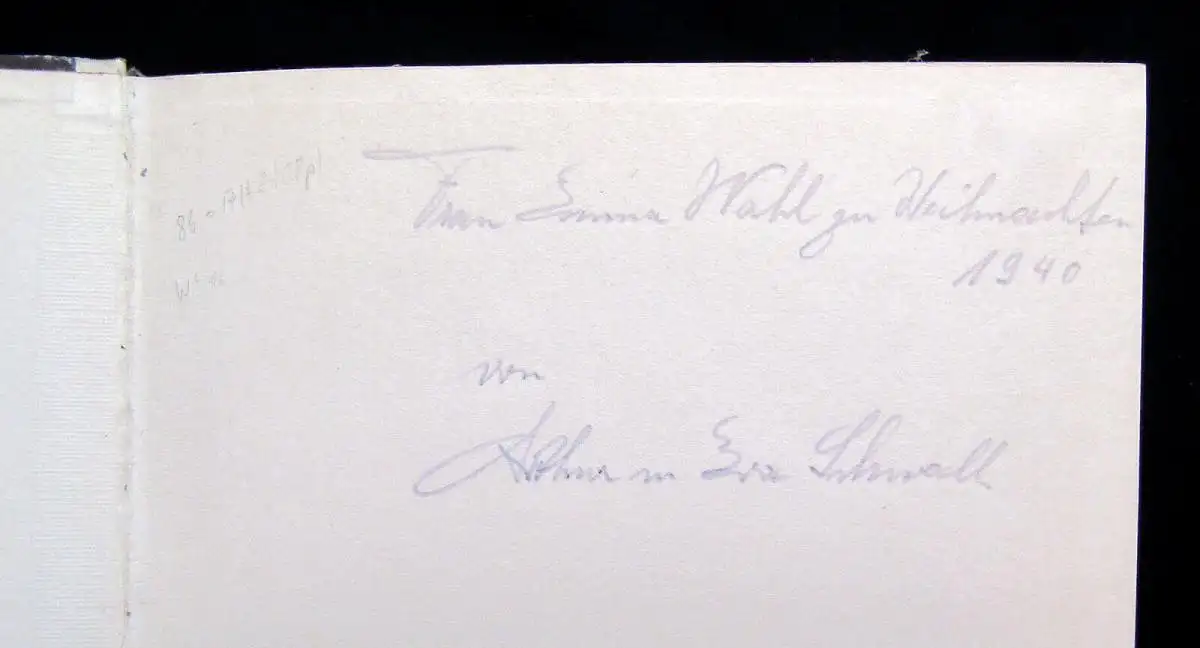 Frau Emma Wahl zu Weihnachten
1940
von
Arthur u Eva Schwall
86